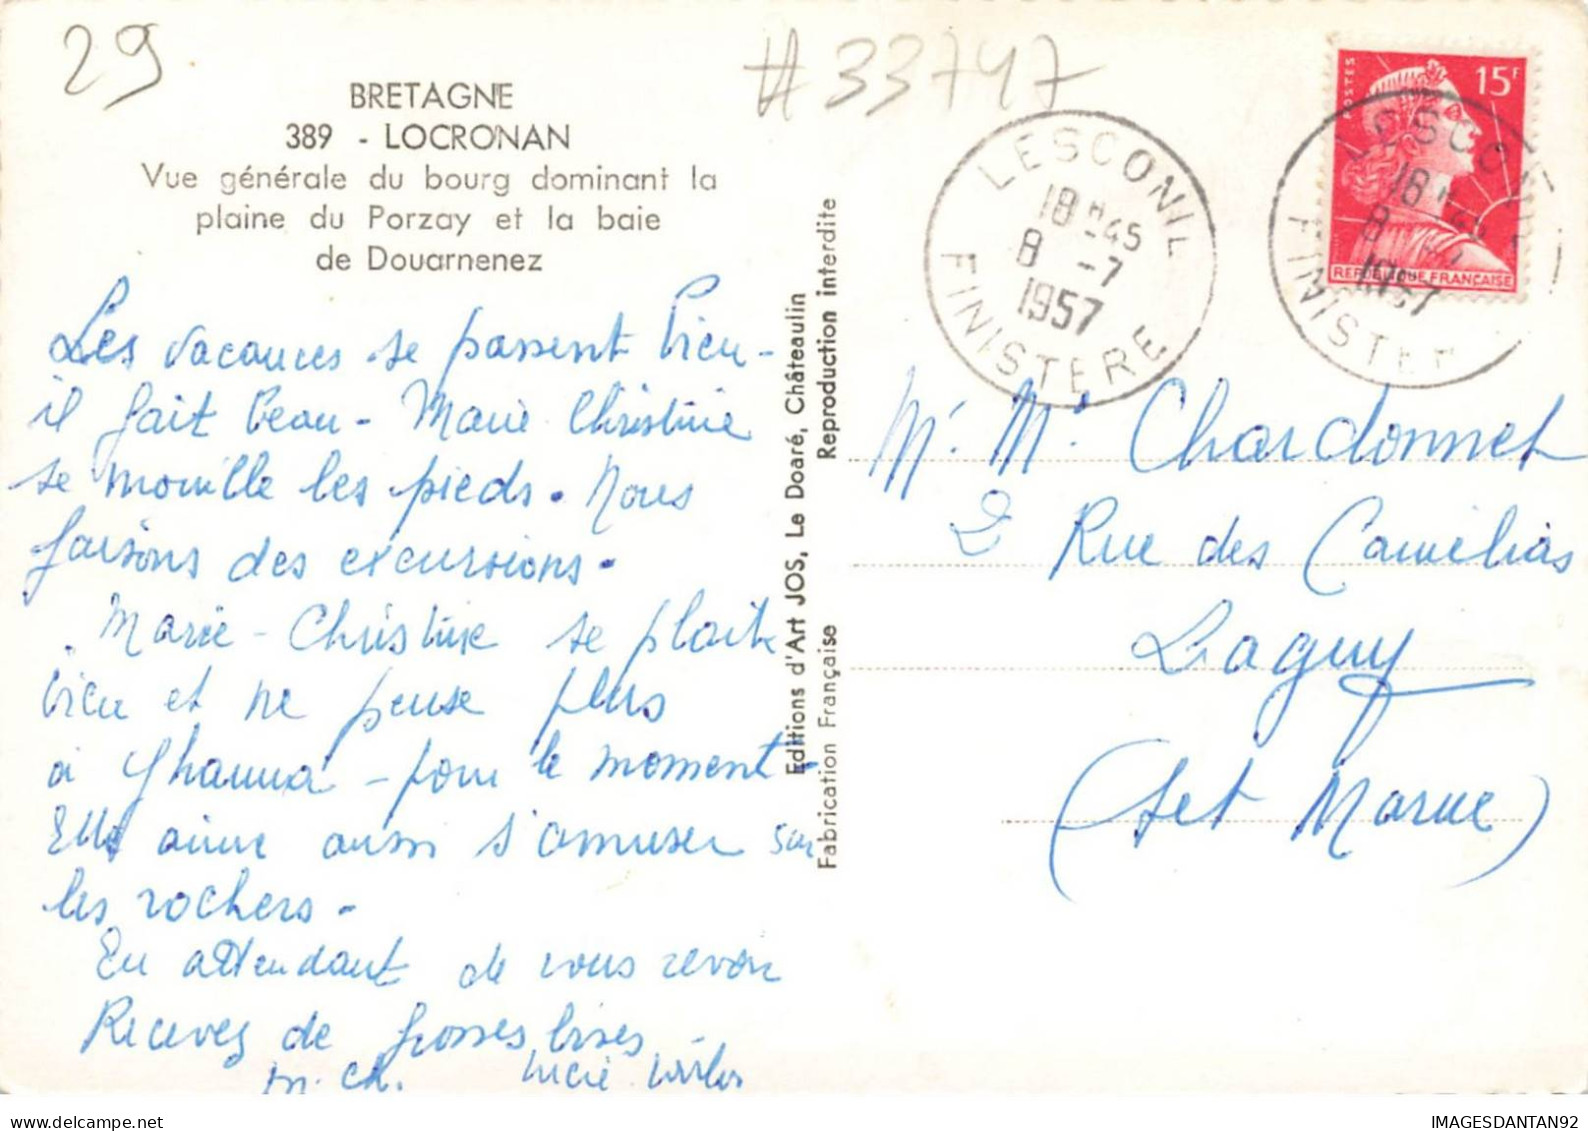 29
# 33747
BRETAGNE
389 - LOCRONAN
Vue générale du bourg dominant la
plaine du Porzay et la baie
de Douarnenez
Les vacances se passent bien -
il fait beau - Marie Christine
se mouille les pieds. Nous
faisons des excursions.
Marie-Christine se plait
bien et ne pense plus
à - pour le moment
Elle aime aussi s'amuser sur
les rochers -
En attendant de vous revoir
Recevez de grosses bises
M. Ch. Lucie
Editions d'Art JOS, Le Doaré, Châteaulin
Fabrication Française Reproduction interdite
LESCONIL
18 H -45
8 -7
1957
FINISTERE
POSTES
15F
REPUBLIQUE FRANÇAISE
LESCONI
18 H -45
8 -7
1957
FINISTER
Mr. Me. Chardonnet
2 Rue des Camélias
Lagny
(Set Marne)
IMAGESDANTAN92